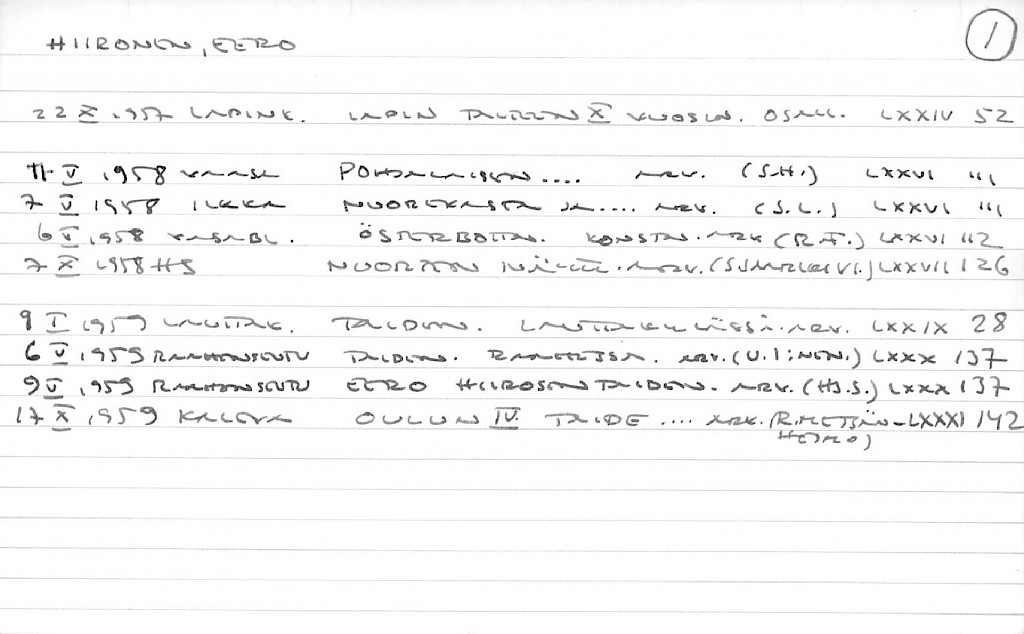 HIIRONEN, EERO
1
22 X 1957 LAPINK. LAPIN X VUOSIN. OSALL. LXXIV 52
11 V 1958 VAASA POHJALAISEN .... ARV. (S.H.) LXXVI 111
7 V 1958 ILKKA NUOREKASTA JA .... ARV. (S.L.) LXXVI 111
6 V 1958 VASABL. ÖSTERBOTTN. KONSTN. ARV. (R.F.) LXXVI 112
7 X 1958 HS NUORTEN ARV. LXXVII 126
9 I 1959 LAUTTAK. TAIDEN. ARV. LXXIX 28
6 V 1959 RAAHENSEUTU TAIDEN. RAAHESSA. ARV. LXXX 137
9 V 1959 RAAHENSEUTU EERO HIIROSEN TAIDEN. ARV. (HJ.S.) LXXX 137
17 X 1959 KALEVA OULUN IV TAIDE .... ARV. (R. METSÄN- LXXXI 142
HEIMO)